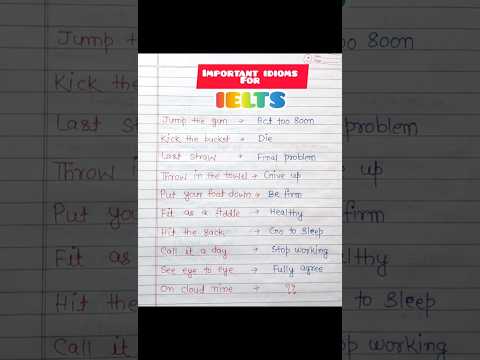 IMPORTANT IDIOMS
FOR
IELTS
Jump the gun → Act too soon
Kick the bucket → Die
Last straw → Final problem
Throw in the towel → Give up
Put your foot down → Be firm
Fit as a fiddle → Healthy
Hit the sack → Go to sleep
Call it a day → Stop working
See eye to eye → Fully agree
On cloud nine → ??
Jump the
too soon
Kick the
Last straw
problem
Throw in
ve up
Put your
firm
Fit as
lthy
Hit the
to sleep
Call it
p working